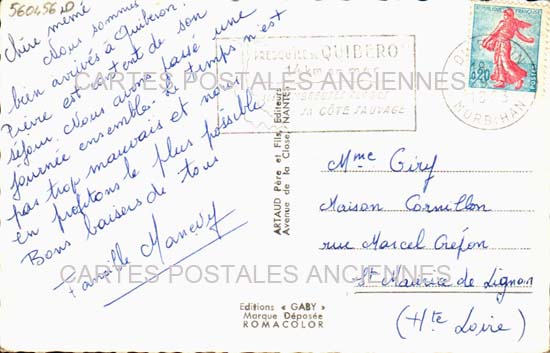 560456 ND
Chère mémé
Nous sommes
bien arrivés à Quiberon.
Pierre est content de son
séjour. Nous avons passé une
journée ensemble. Le temps n'est
pas trop mauvais et nous
en profitons le plus possible
Bons baisers de tous
Famille Manevy
PRESQU'ILE DE QUIBERON
LA CÔTE SAUVAGE
RÉPUBLIQUE FRANÇAISE
0,20
POSTES
MORBIHAN
CARTES POSTALES ANCIENNES
ARTAUD Père et Fils, Editeurs
Avenue de la Close, NANTES
Mme Giry
Maison Cornillon
rue Marcel Crépon
St Maurice de Lignon
(Hte Loire)
CARTES POSTALES ANCIENNES
Editions « GABY »
Marque Déposée
ROMACOLOR